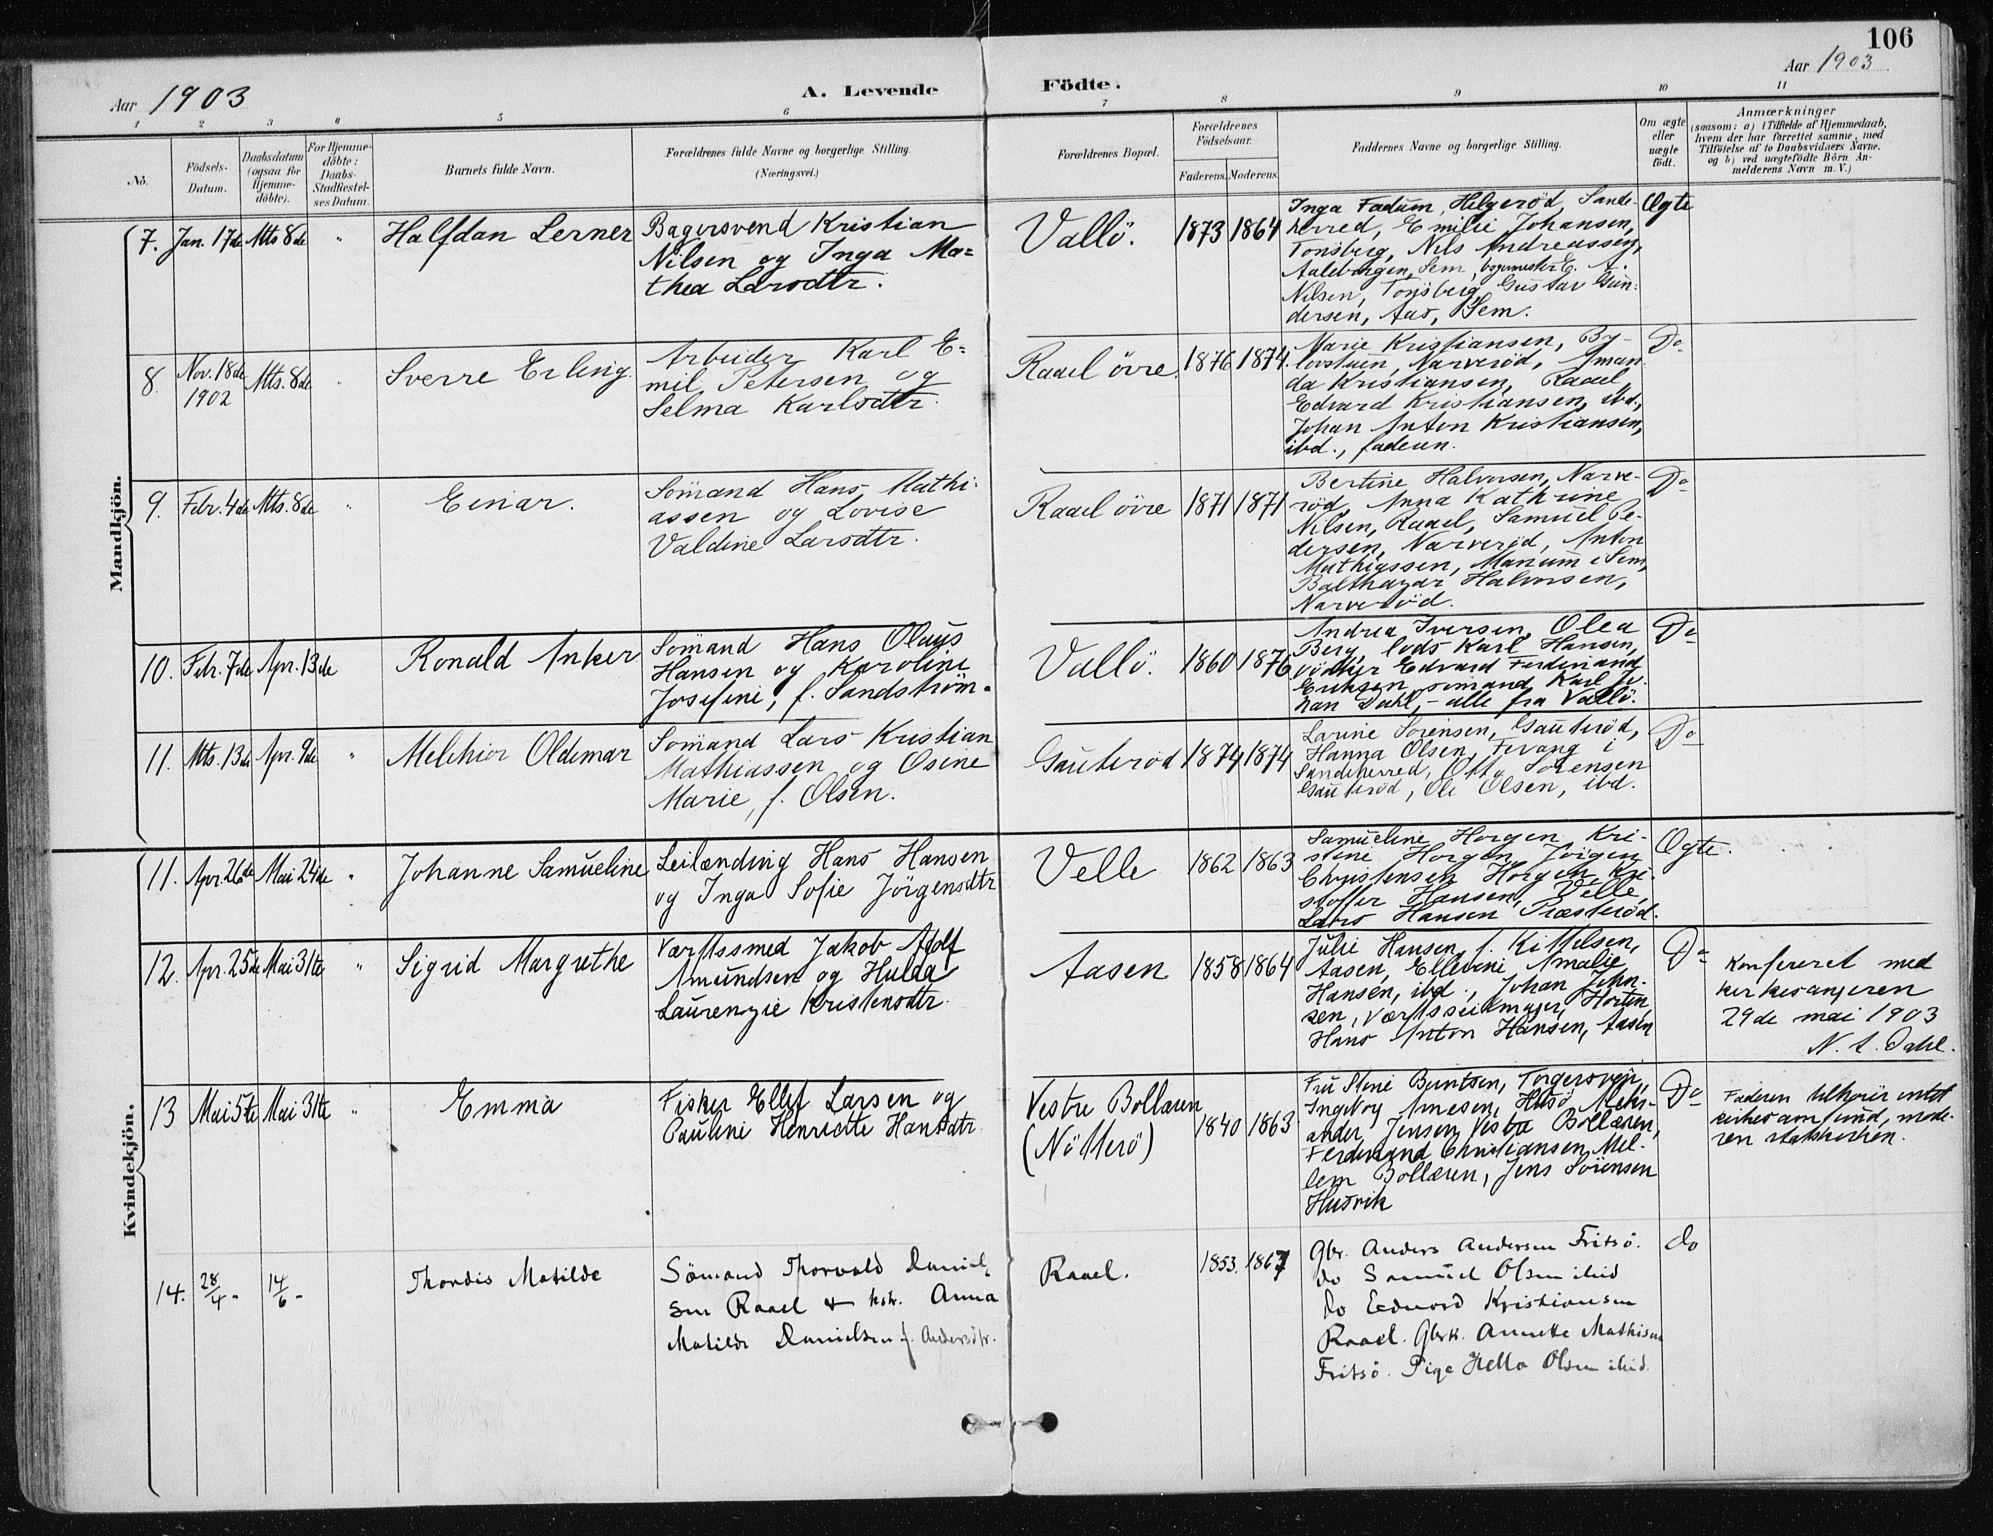 106
Aar 1903
A. Levende
Födte.
Aar 1903
1 2 3 4 5 6 7 8 9 10 11
No.
Födsels-
Datum.
Daabsdatum
(ogsaa for
Hjemme-
döbte).
For Hjemme-
döbte:
Daabs-
Stadfæstel-
ses Datum.
Barnets fulde Navn.
Forældrenes fulde Navne og borgerlige Stilling.
(Næringsvei.)
Forældrenes Bopæl.
Forældrenes
Födselsaar.
Faderens. Moderens.
Faddernes Navne og borgerlige Stilling.
Om ægte
eller
uægte
født.
Anmærkninger
(saasom: a) i Tilfælde af Hjemmedaab,
hvem der har forrettet samme, med
Tilföielse af to Daabsvidners Navne.
og b) ved uægtefödte Börn An-
melderens Navn m. V.)
Mandkjön.
7. Jan. 17de Mts 8de "
Halfdan Lerner
Bagersvend Kristian
Nilsen og Inga Ma=
thea Larsdtr.
Vallö.
1873 1864
Inga Fadum, Helgerød, Sande-
herred, Emilie Johansen,
Tonsberg, Nils Andreassen,
Aaleborgen, Sem, bagermester E. A.
Nilsen, Tonsberg, Gustav Gun-
dersen, Aas, Sem.
Ægte
8. Nov. 18de
1902
Mts. 8de "
Sverre Erling.
Arbeider Karl E=
mil Petersen og
Selma Karlsdtr.
Raael övre
1876 1874
Marie Kristiansen, By-
lovstuen, Narverød, Aman
da Kristiansen, Raael,
Edvard Kristiansen, ibd.,
Johan Anton Kristiansen,
ibd., faderen.
Do
9. Febr. 4de Mts. 8de "
Einar.
Sömand Hans Mathi-
assen og Lovise
Valdine Larsdtr.
Raael övre
1871 1871
Bertine Halvorsen, Narve-
röd, Anna Kathrine
Nilsen, Raael, Samuel Pe-
dersen, Narverød, Anton
Mathiassen, Manum i Sem,
Balthazar Halvorsen,
Narveröd.
Do
10. Febr. 7de Apr. 13de
Ronald Anker
Sömand Hans Olaus
Hansen og Karoline
Josefine, f. Sandström.
Vallö.
1860 1876
Andrea Iversen, Olea
Berg, lods Karl Hansen,
bödker Edvard Ferdinand
Eriksen, sömand Karl Jo-
han Dahl, - alle fra Vallö.
Do
11. Mts. 13de Apr. 9de "
Melchior Oldemar
Sömand Lars Kristian
Mathiassen og Osine
Marie, f. Olsen.
Gauteröd
1874 1874
Larine Sörensen, Gauteröd,
Hanna Olsen, Fevang i
Sandeherred, Otto Sörensen
Gauteröd, Ole Olsen, ibd.
Do
Kvindekjön.
11. Apr. 26de Mai 24de "
Johanne Samueline
Leilænding Hans Hansen
og Inga Sofie Jörgensdtr
Velle
1862 1863
Samueline Horgen, Kri-
stine Horgen, Jörgen
Christensen Horgen, Kri-
stoffer Hansen, Velle,
Lars Hansen Præsteröd.
Ægte.
12. Apr. 25de Mai 31te "
Sigrid Margrethe
Værftssmed Jakob Adolf
Amundsen og Hulda
Laurenzie Kristensdtr.
Aasen
1858 1864
Julie Hansen, f. Kittelsen,
Aasen, Ellevine Amalie
Hansen, ibd., Johan John-
sen, værftsseilmager, Horten,
Hans Anton Hansen, Aasen
Do
Konfereret med
kirkesangeren
29de mai 1903
N. A. Dahl.
13 Mai 5te Mai 31te "
Emma
Fisker Ellef Larsen og
Pauline Henriette Hansdtr.
Vestre Bollæren
(Nötterö)
1840 1863
Fru Stene Berntsen, Torgersøen,
Ingeborg Arnesen, Husö, Aleks-
ander Jensen, Vestre Bollæren,
Ferdinand Christiansen, Mel-
lem Bollæren, Jens Sörensen
Husvik
Do
Faderen tilhörer intet
kirkesamfund, mode-
ren statskirken.
14. 28/4 - 14/6 -
Thordis Matilde
Sömand Thorvald Daniel-
sen Raael & hstr. Anna
Matilde Danielsen f. Andersdtr.
Raael.
1853 1867
Gbr. Anders Andersen Fritsö.
do Samuel Olsen ibid
do Edvard Kristiansen
Raael. Gbrk. Annette Mathisen
Fritsö. Pige Helle Olsen ibid.
do